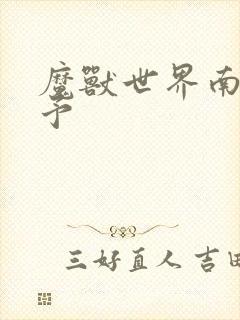 魔獸世界南
予
三好直人 吉田